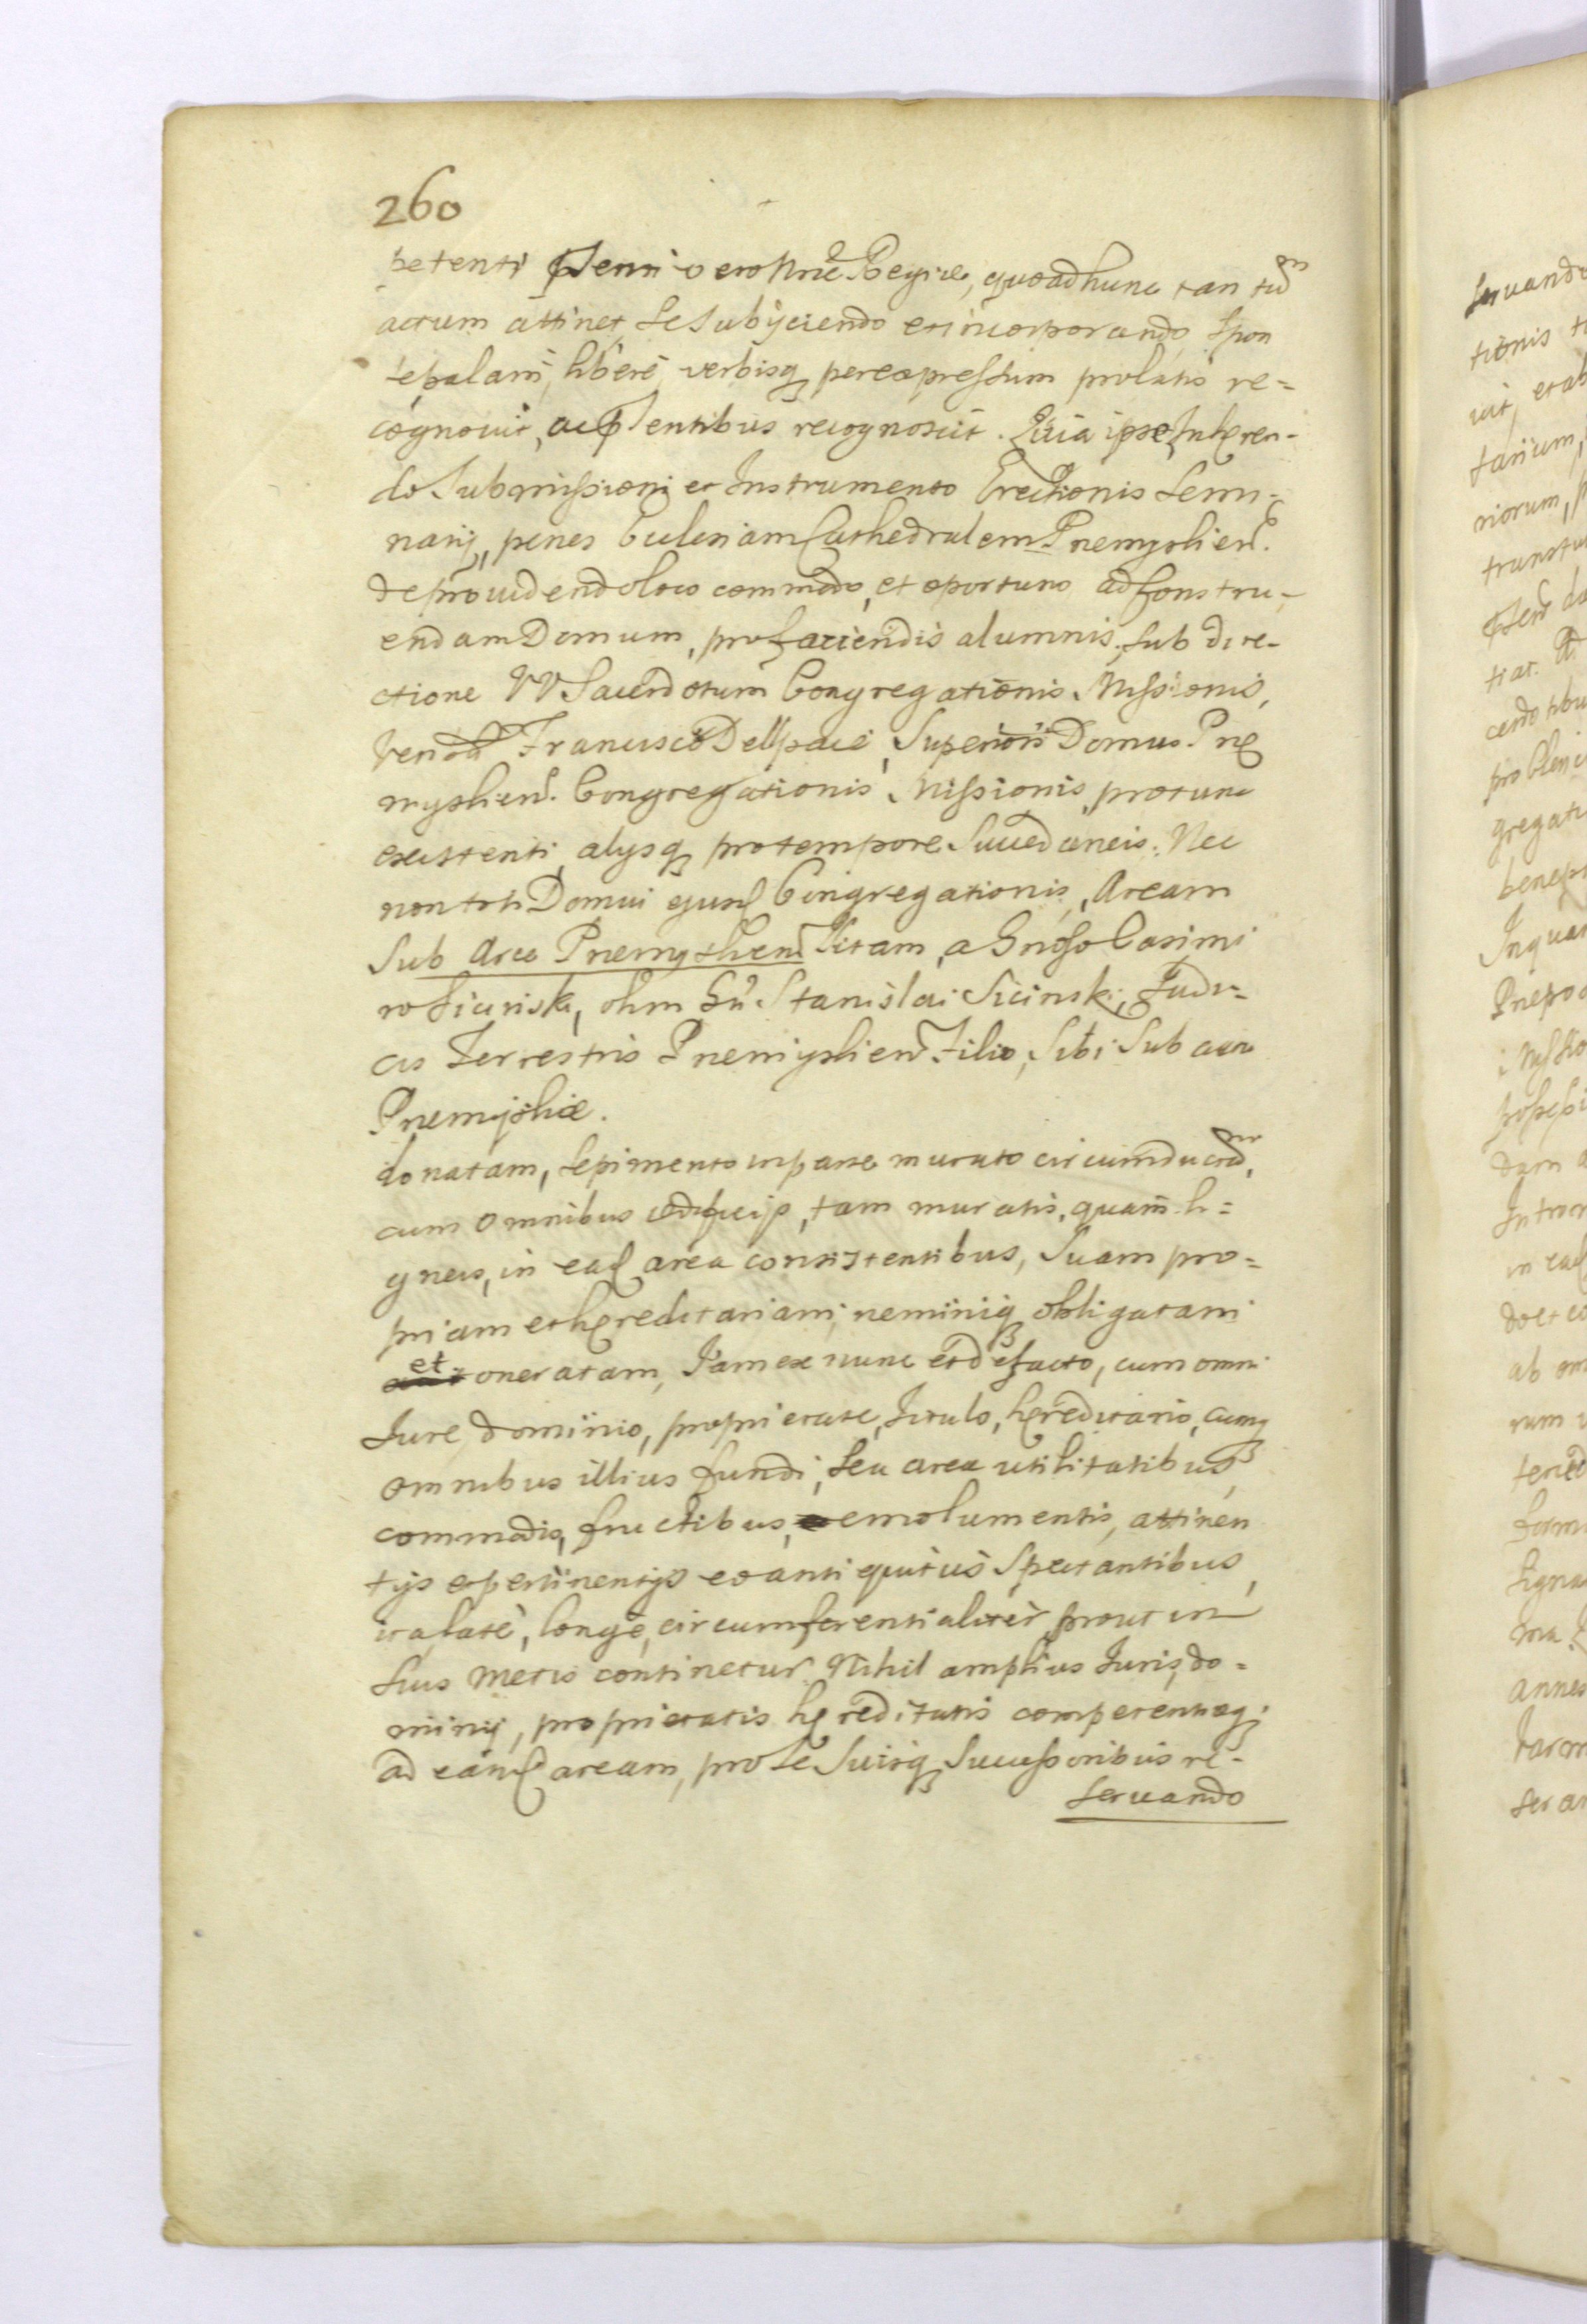 260
petenti Pſenti vero Nrae Regiae, quoad hunc tan tu͂m
actum attinet, Se Subijciendo et incorporando, Spon
te palam, libere, verbisq̃ per expreſsum prolatis re=
cognovit, ac Pſentibus recognoscit. Quia ipse Inhæren-
do Submiſsioni et Instrumento Erectionis Semi-
narij, penes Ecclesiam Cathedralem Præmyslien̄.
de providendo loco commodo, et oportuno ad Constru-
endam Domum, pro faciendis alumnis, Sub dire-
ctione VV Sacerdotum Congregationis Miſsionis,
Vendō Francisco Dellpacé, Superiori Domus Præ
myslien̄. Congregationis Miſsionis, protunc
existenti, alysq̃ pro tempore Succedaneis. Nec
non toti Domui ejusd̄ Congregationis, Aream
Sub Arce Præmyslien̄ Sitam, a Gnoſo Casimi
ro Sicinski, olim Gn̄ Stanislai Sicinski, Judi-
cis Terrestris Præmyslien̄ Filio, Sibi Sub arce
Præmysliæ.
donatam, Sepimento in parte murato circumductā,
cum omnibus ædificijs, tam muratis, quam li=
gneis, in ead̄ area consistentibus, Suam pro=
priam et hæreditariam, neminiq̃ obligatam
et oneratam, Jam ex nunc et de facto, cum omni
Jure, dominio, proprietate, titulo, hæreditario, cumq̃
omnibus illius fundi, Seu areæ utilitatibus,
commodis, fructibus, emolumentis, attinen
tijs et pertinentijs ex antiquitus Spectantibus,
ita late, longe, circumferentialiter, prout in
Suis metis continetur. Nihil amplius Juris, do=
minij, proprietatis hæreditatis competentiæq̃
ad eand̄ aream, pro Se Suisq̃ Succeſsoribus re-
Servando